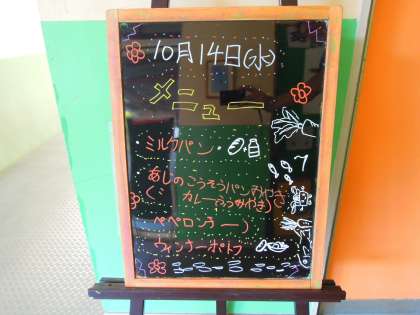 10月14日(水)
メニュー
ミルクパン
あじのこうそうパンこやき
カレーふうみやき
ペペロンチーノ
ウィンナーポトフ